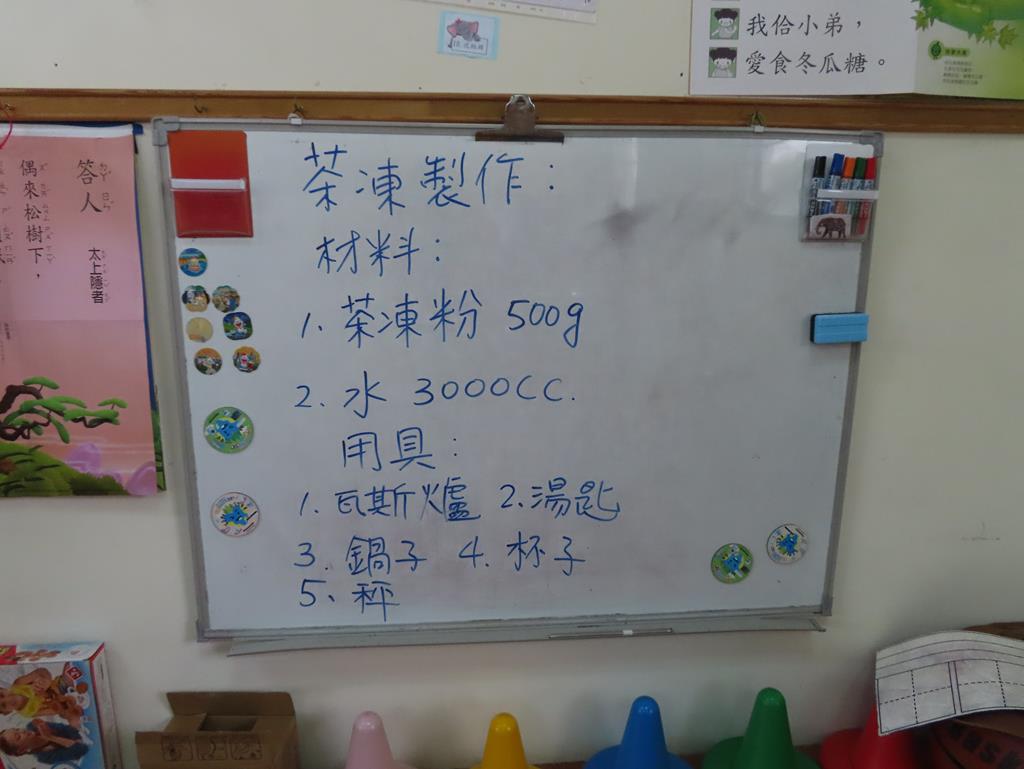 我佮小弟，
愛食冬瓜糖。
答人
太上隱者
偶來松樹下，
茶凍製作：
材料：
1. 茶凍粉 500g
2. 水 3000CC.
用具：
1. 瓦斯爐 2. 湯匙
3. 鍋子 4. 杯子
5、秤